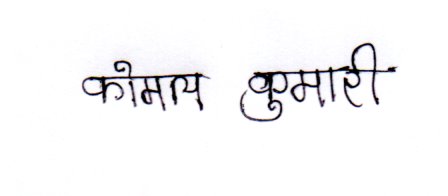 कोमाय कुमारी